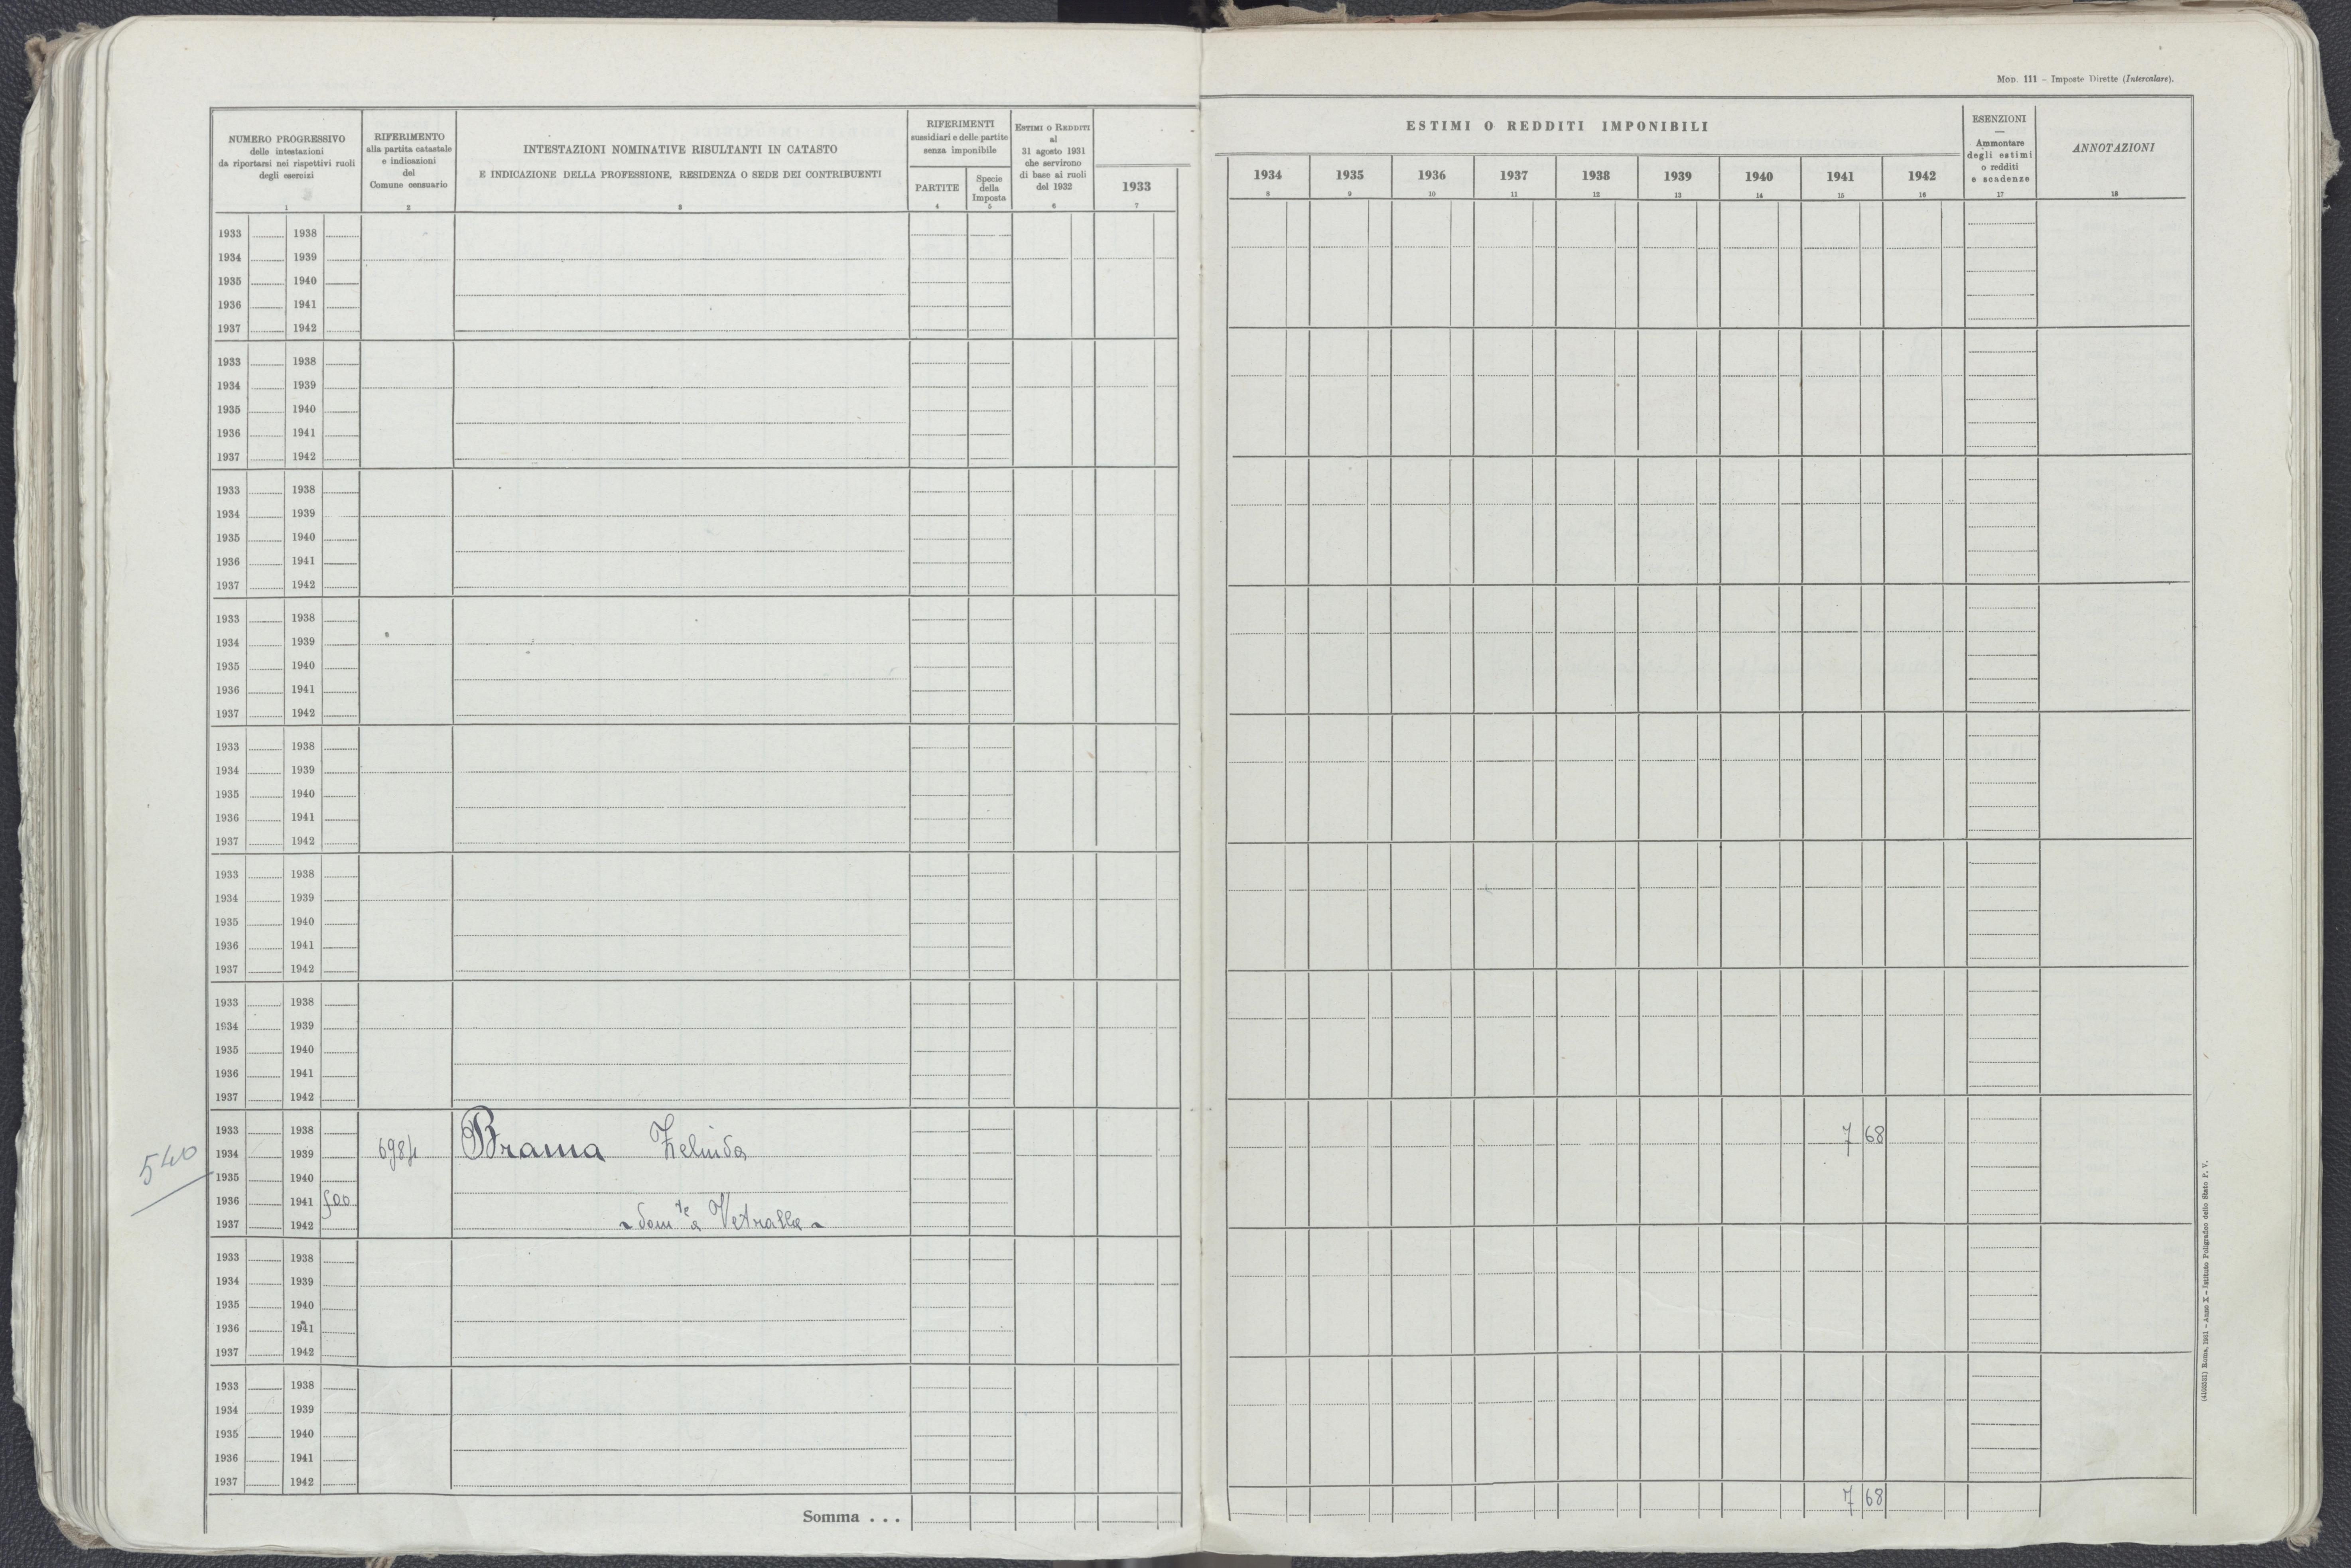 Mod. 111 – Imposte Dirette (Intercalare).
NUMERO PROGRESSIVO
delle intestazioni
da riportarsi nei rispettivi ruoli
degli esercizi
1
RIFERIMENTO
alla partita catastale
e indicazioni
del
Comune censuario
2
INTESTAZIONI NOMINATIVE RISULTANTI IN CATASTO
E INDICAZIONE DELLA PROFESSIONE, RESIDENZA O SEDE DEI CONTRIBUENTI
3
RIFERIMENTI
sussidiari e delle partite
senza imponibile
PARTITE
4
Specie
della
Imposta
5
Estimi o Redditi
al
31 agosto 1931
che servirono
di base ai ruoli
del 1932
6
1933
7
ESTIMI O REDDITI IMPONIBILI
1934 1935 1936 1937 1938 1939 1940 1941 1942
8 9 10 11 12 13 14 15 16
ESENZIONI
—
Ammontare
degli estimi
o redditi
e scadenze
17
ANNOTAZIONI
18
1933 1938
1934 1939
1935 1940
1936 1941
1937 1942
1933 1938
1934 1939
1935 1940
1936 1941
1937 1942
1933 1938
1934 1939
1935 1940
1936 1941
1937 1942
1933 1938
1934 1939
1935 1940
1936 1941
1937 1942
1933 1938
1934 1939
1935 1940
1936 1941
1937 1942
1933 1938
1934 1939
1935 1940
1936 1941
1937 1942
1933 1938
1934 1939
1935 1940
1936 1941
1937 1942
1933 1938
540 1934 1939 6984 Brama Zelinda 7 68
1935 1940
1936 1941 500
1937 1942 ~ Domte a Vetralla ~
1933 1938
1934 1939
1935 1940
1936 1941
1937 1942
1933 1938
1934 1939
1935 1940
1936 1941
1937 1942
Somma . . . 7 68
(4102551) Roma, 1931 – Anno X – Istituto Poligrafico dello Stato P. V.